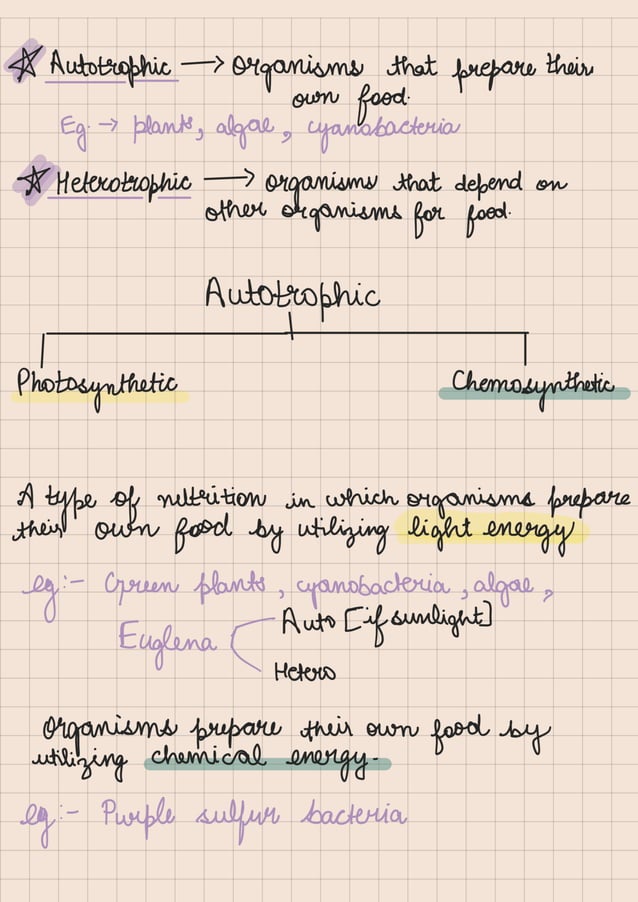 ☆ Autotrophic → Organisms that prepare their
own food.
Eg. → plants, algae, cyanobacteria
☆ Heterotrophic → organisms that depend on
other organisms for food.
Autotrophic
Photosynthetic
Chemosynthetic
A type of nutrition in which organisms prepare
their own food by utilizing light energy
eg:- Green plants, cyanobacteria, algae,
Auto [if sunlight]
Euglena
Hetero
Organisms prepare their own food by
utilizing chemical energy.
eg:- Purple sulfur bacteria